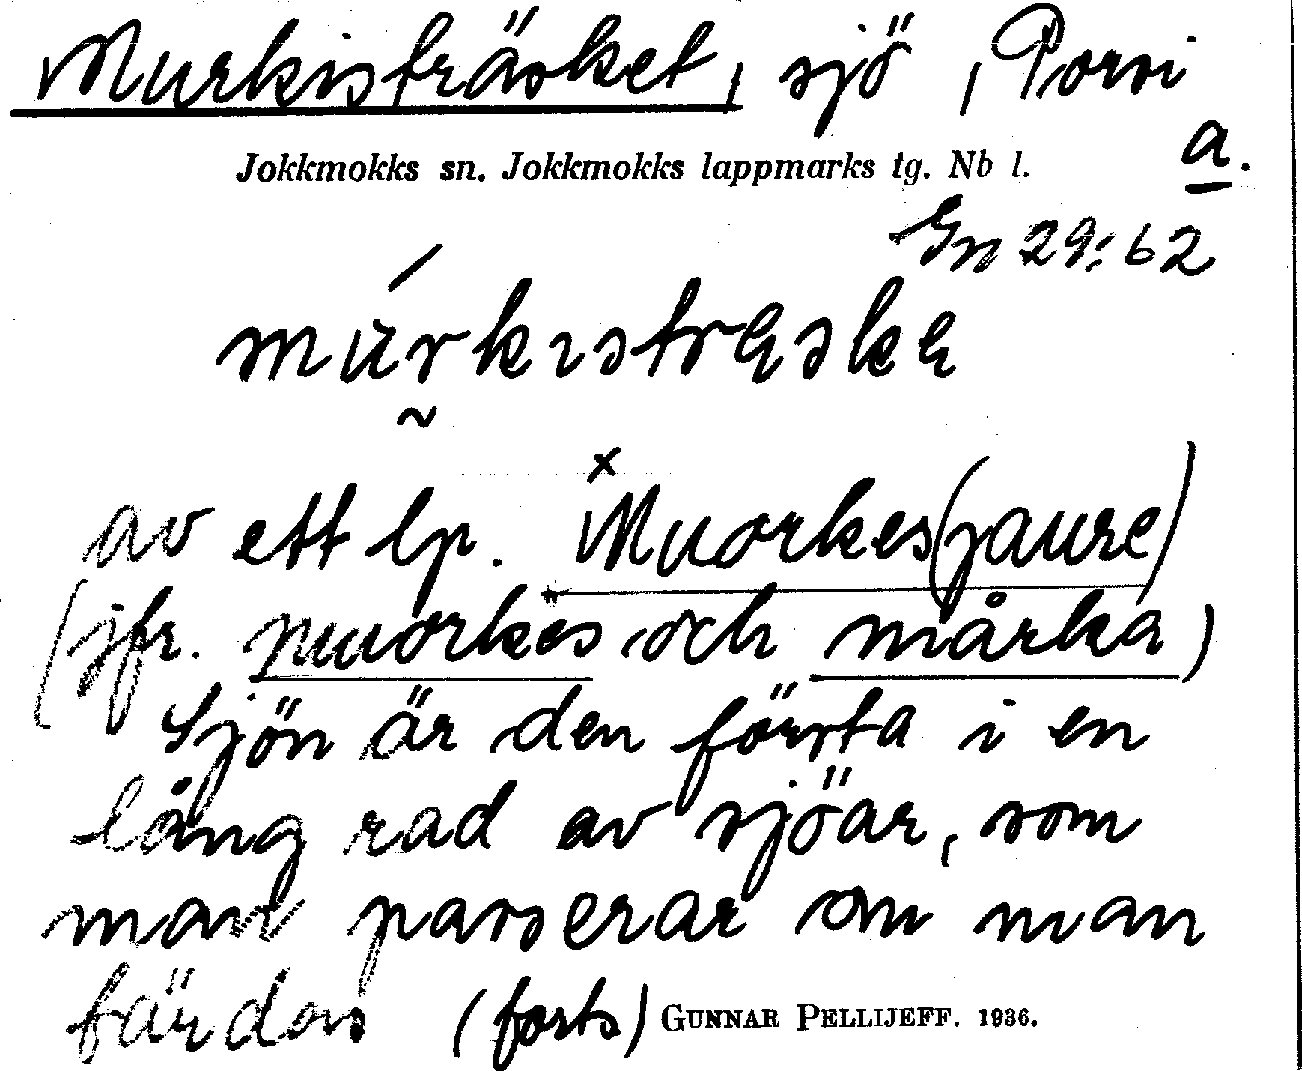 Murkisträsket, sjö, Porsi
a.
Jokkmokks sn. Jokkmokks lappmarks tg. Nb l.
Gn 29:62
mu̇́rkıstrɐskɐ
av ett lp. ˣMuorkes(jaure)
(jfr. muorkēs och mårka)
Sjön är den första i en
lång rad av sjöar, som
man passerar om man
färdas (forts) GUNNAR PELLIJEFF. 1936.